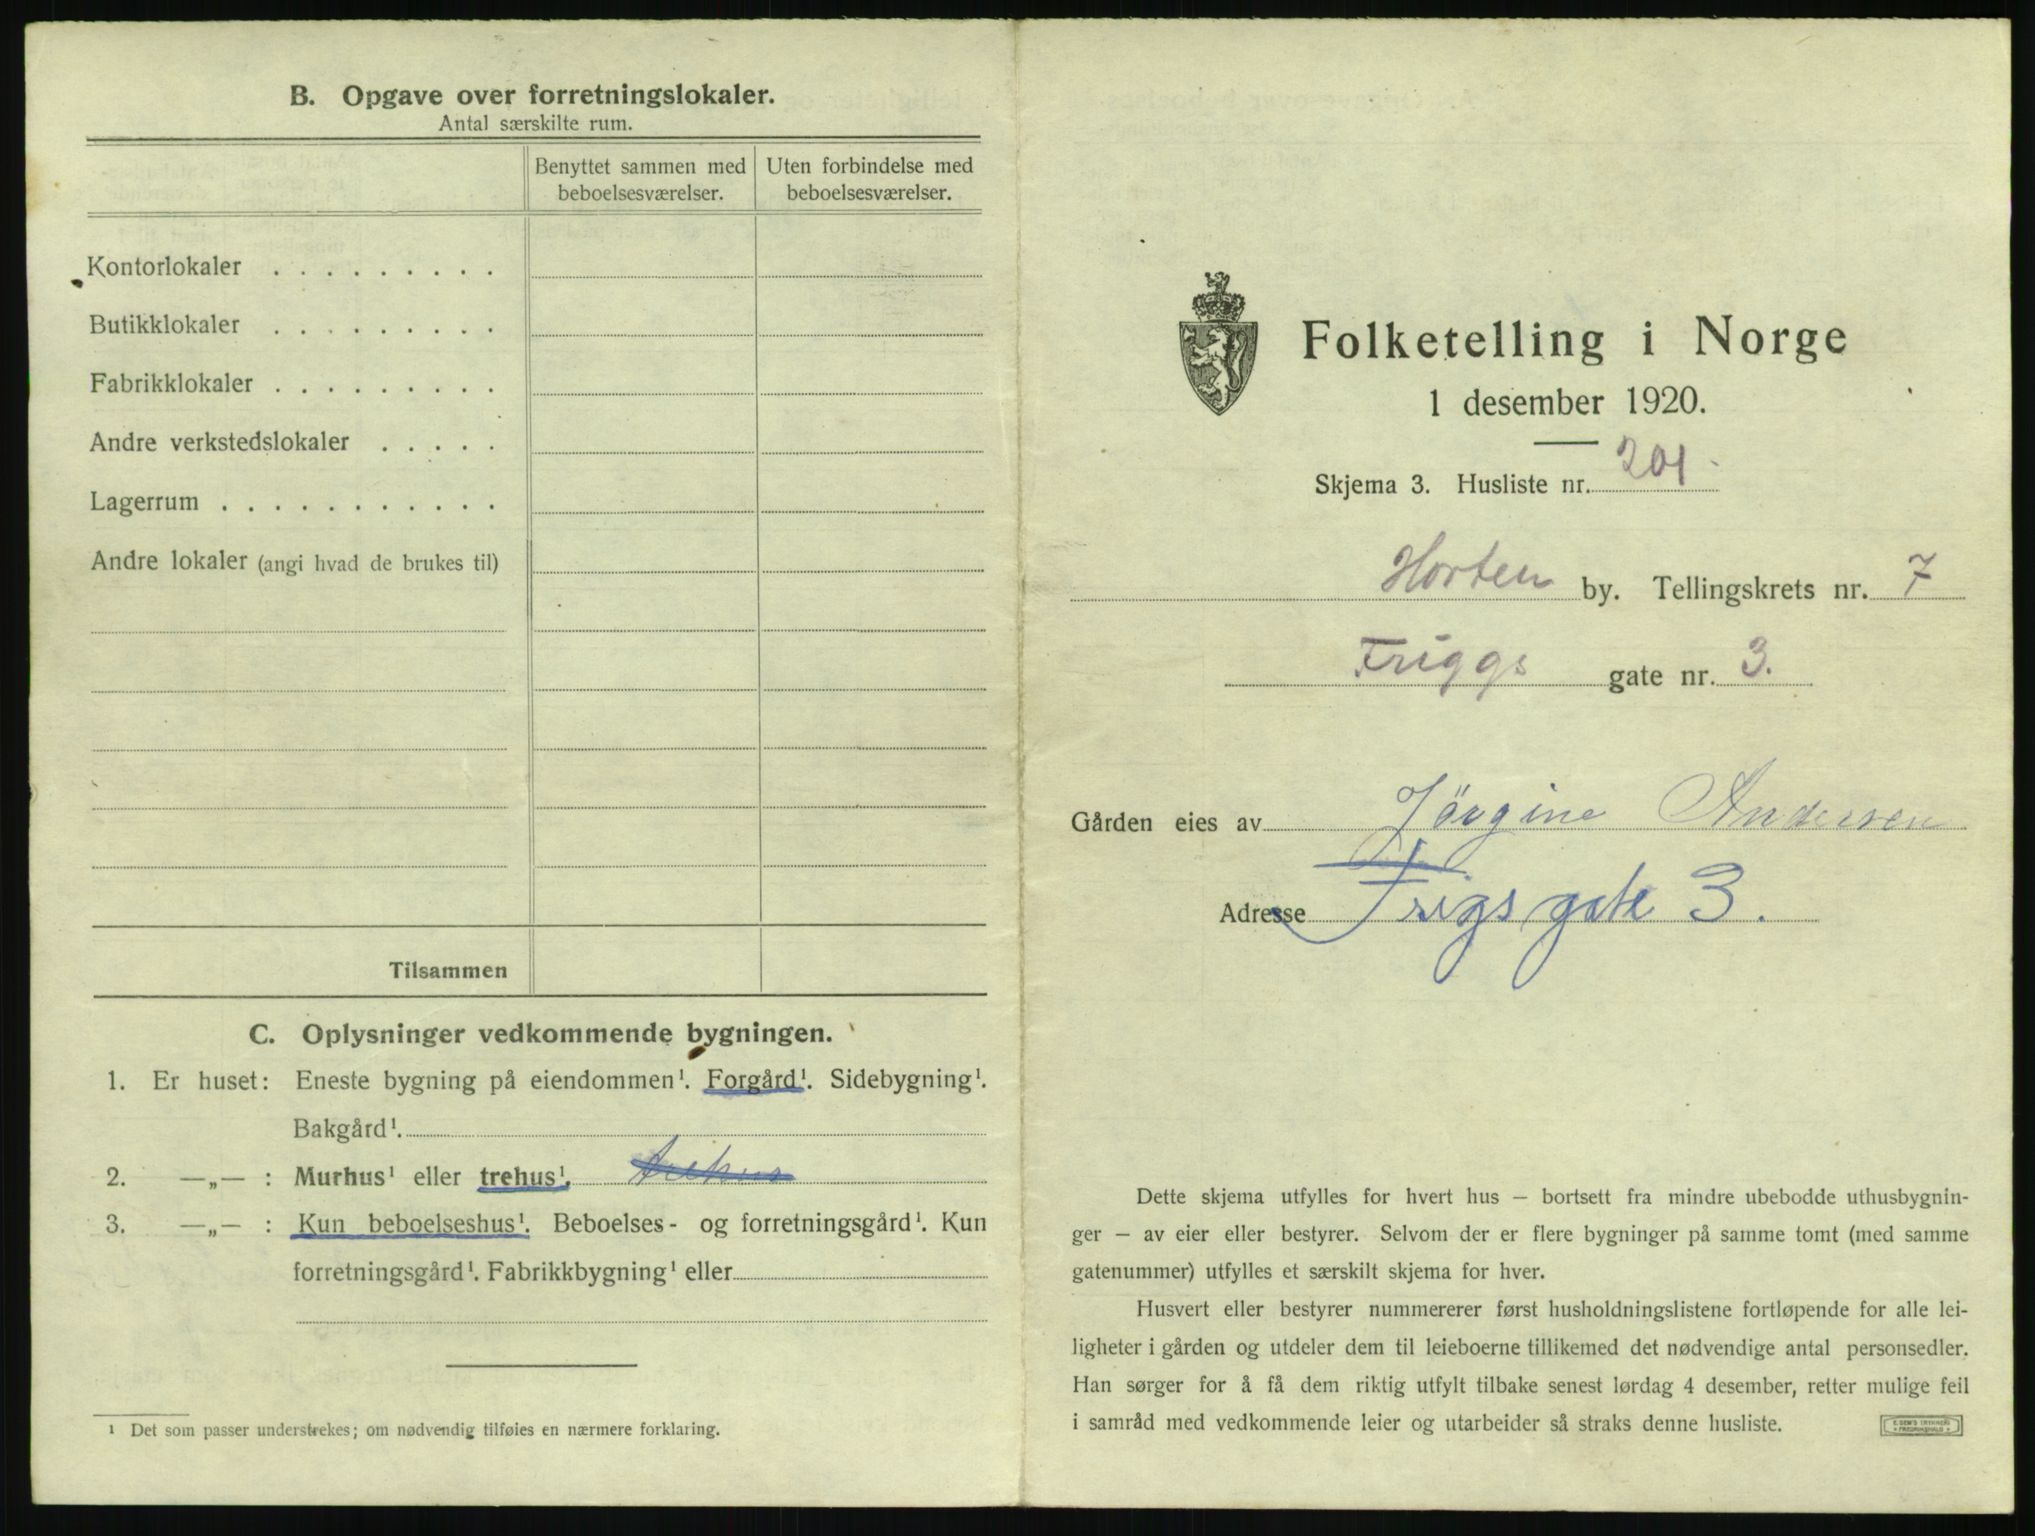 B. Opgave over forretningslokaler.
Antal særskilte rum.
Benyttet sammen med beboelsesværelser.
Uten forbindelse med beboelsesværelser.
Kontorlokaler . . . . . . . . .
Butikklokaler . . . . . . . . .
Fabrikklokaler . . . . . . . . .
Andre verkstedslokaler . . . . .
Lagerrum . . . . . . . . . . . .
Andre lokaler (angi hvad de brukes til)
Tilsammen
C. Oplysninger vedkommende bygningen.
1. Er huset: Eneste bygning på eiendommen¹. Forgård¹. Sidebygning¹.
Bakgård¹.
2. —„— : Murhus¹ eller trehus¹. trehus
3. —„— : Kun beboelseshus¹. Beboelses- og forretningsgård¹. Kun
forretningsgård¹. Fabrikkbygning¹ eller
¹ Det som passer understrekes; om nødvendig tilføies en nærmere forklaring.
Folketelling i Norge
1 desember 1920.
Skjema 3. Husliste nr. 201.
Horten by. Tellingskrets nr. 7
Friggs gate nr. 3.
Gården eies av Jörgine Andersen
Adresse Frigsgate 3.
Dette skjema utfylles for hvert hus – bortsett fra mindre ubebodde uthusbygnin-
ger – av eier eller bestyrer. Selvom der er flere bygninger på samme tomt (med samme
gatenummer) utfylles et særskilt skjema for hver.
Husvert eller bestyrer nummererer først husholdningslistene fortløpende for alle lei-
ligheter i gården og utdeler dem til leieboerne tillikemed det nødvendige antal personsedler.
Han sørger for å få dem riktig utfylt tilbake senest lørdag 4 desember, retter mulige feil
i samråd med vedkommende leier og utarbeider så straks denne husliste.